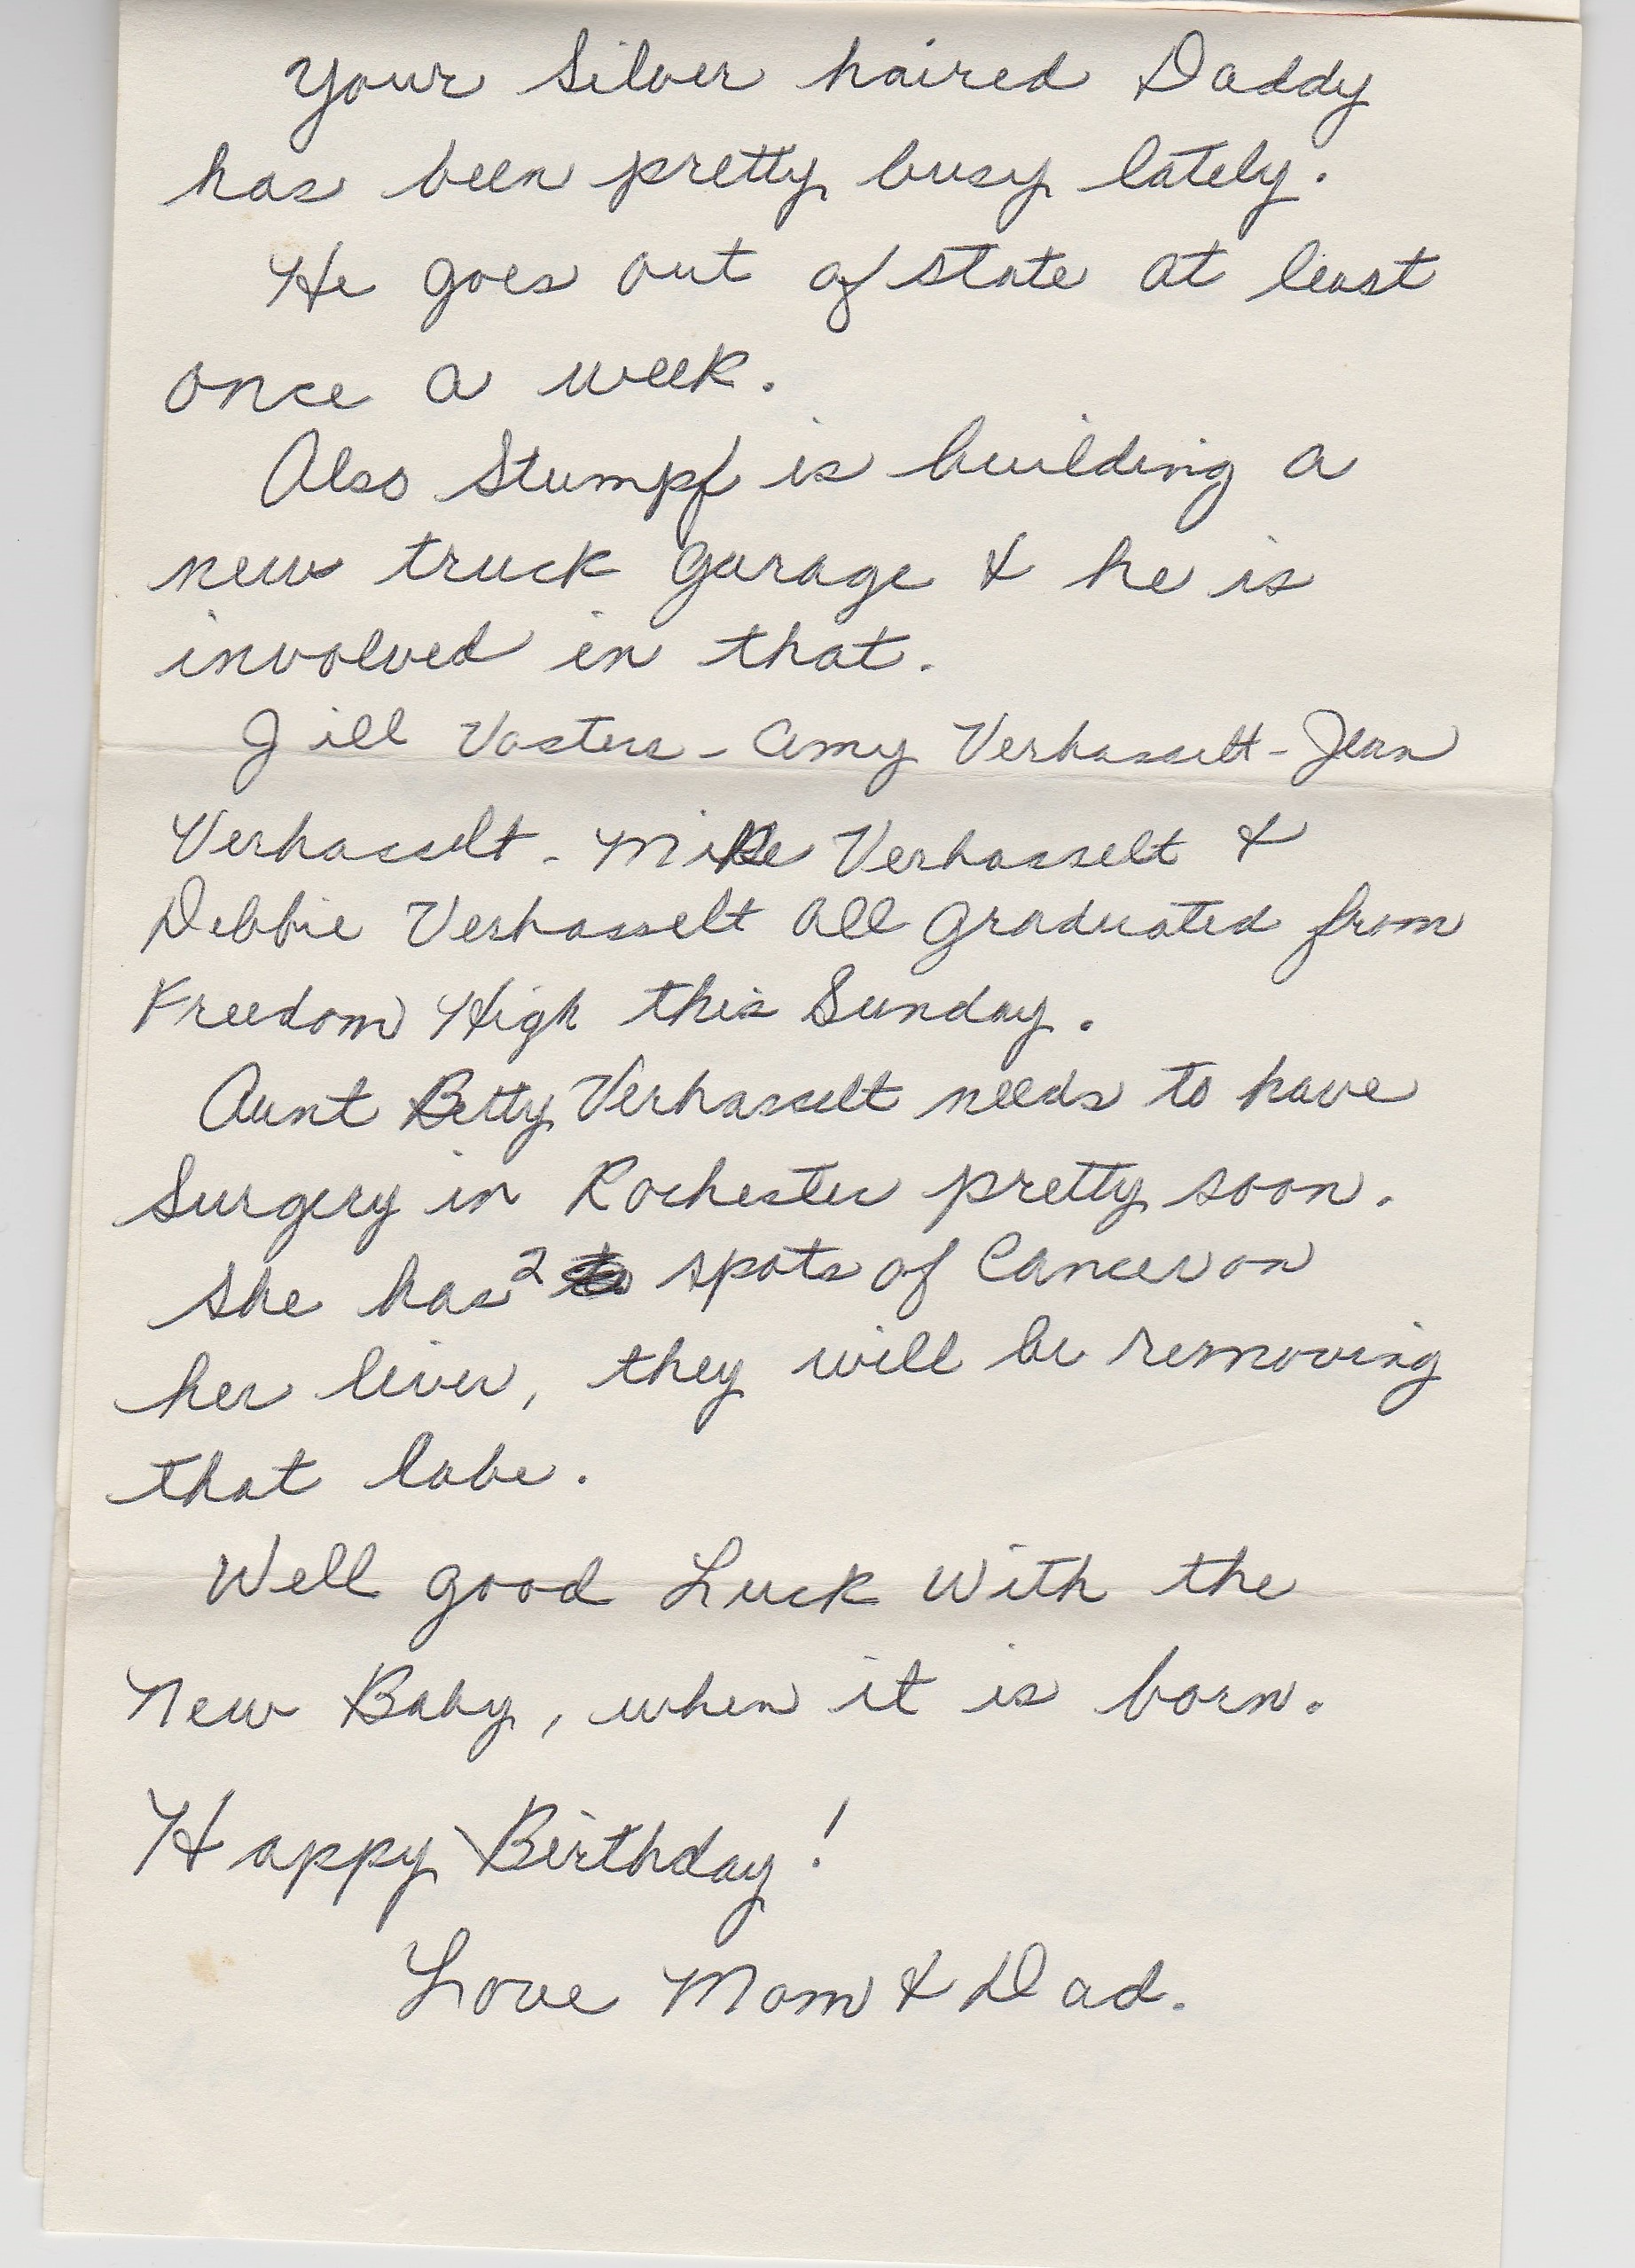 Your Silver haired Daddy
has been pretty busy lately.
He goes out of state at least
once a week.
Also Stumpf is building a
new truck garage & he is
involved in that.
Jill Vosters - Amy Verhasselt - Jean
Verhasselt - Mike Verhasselt &
Debbie Verhasselt all graduated from
Freedom High this Sunday.
Aunt Betty Verhasselt needs to have
Surgery in Rochester pretty soon.
She has 2 spots of Cancer on
her liver, they will be removing
that lobe.
Well good Luck with the
New Baby, when it is born.
Happy Birthday!
Love Mom & Dad.